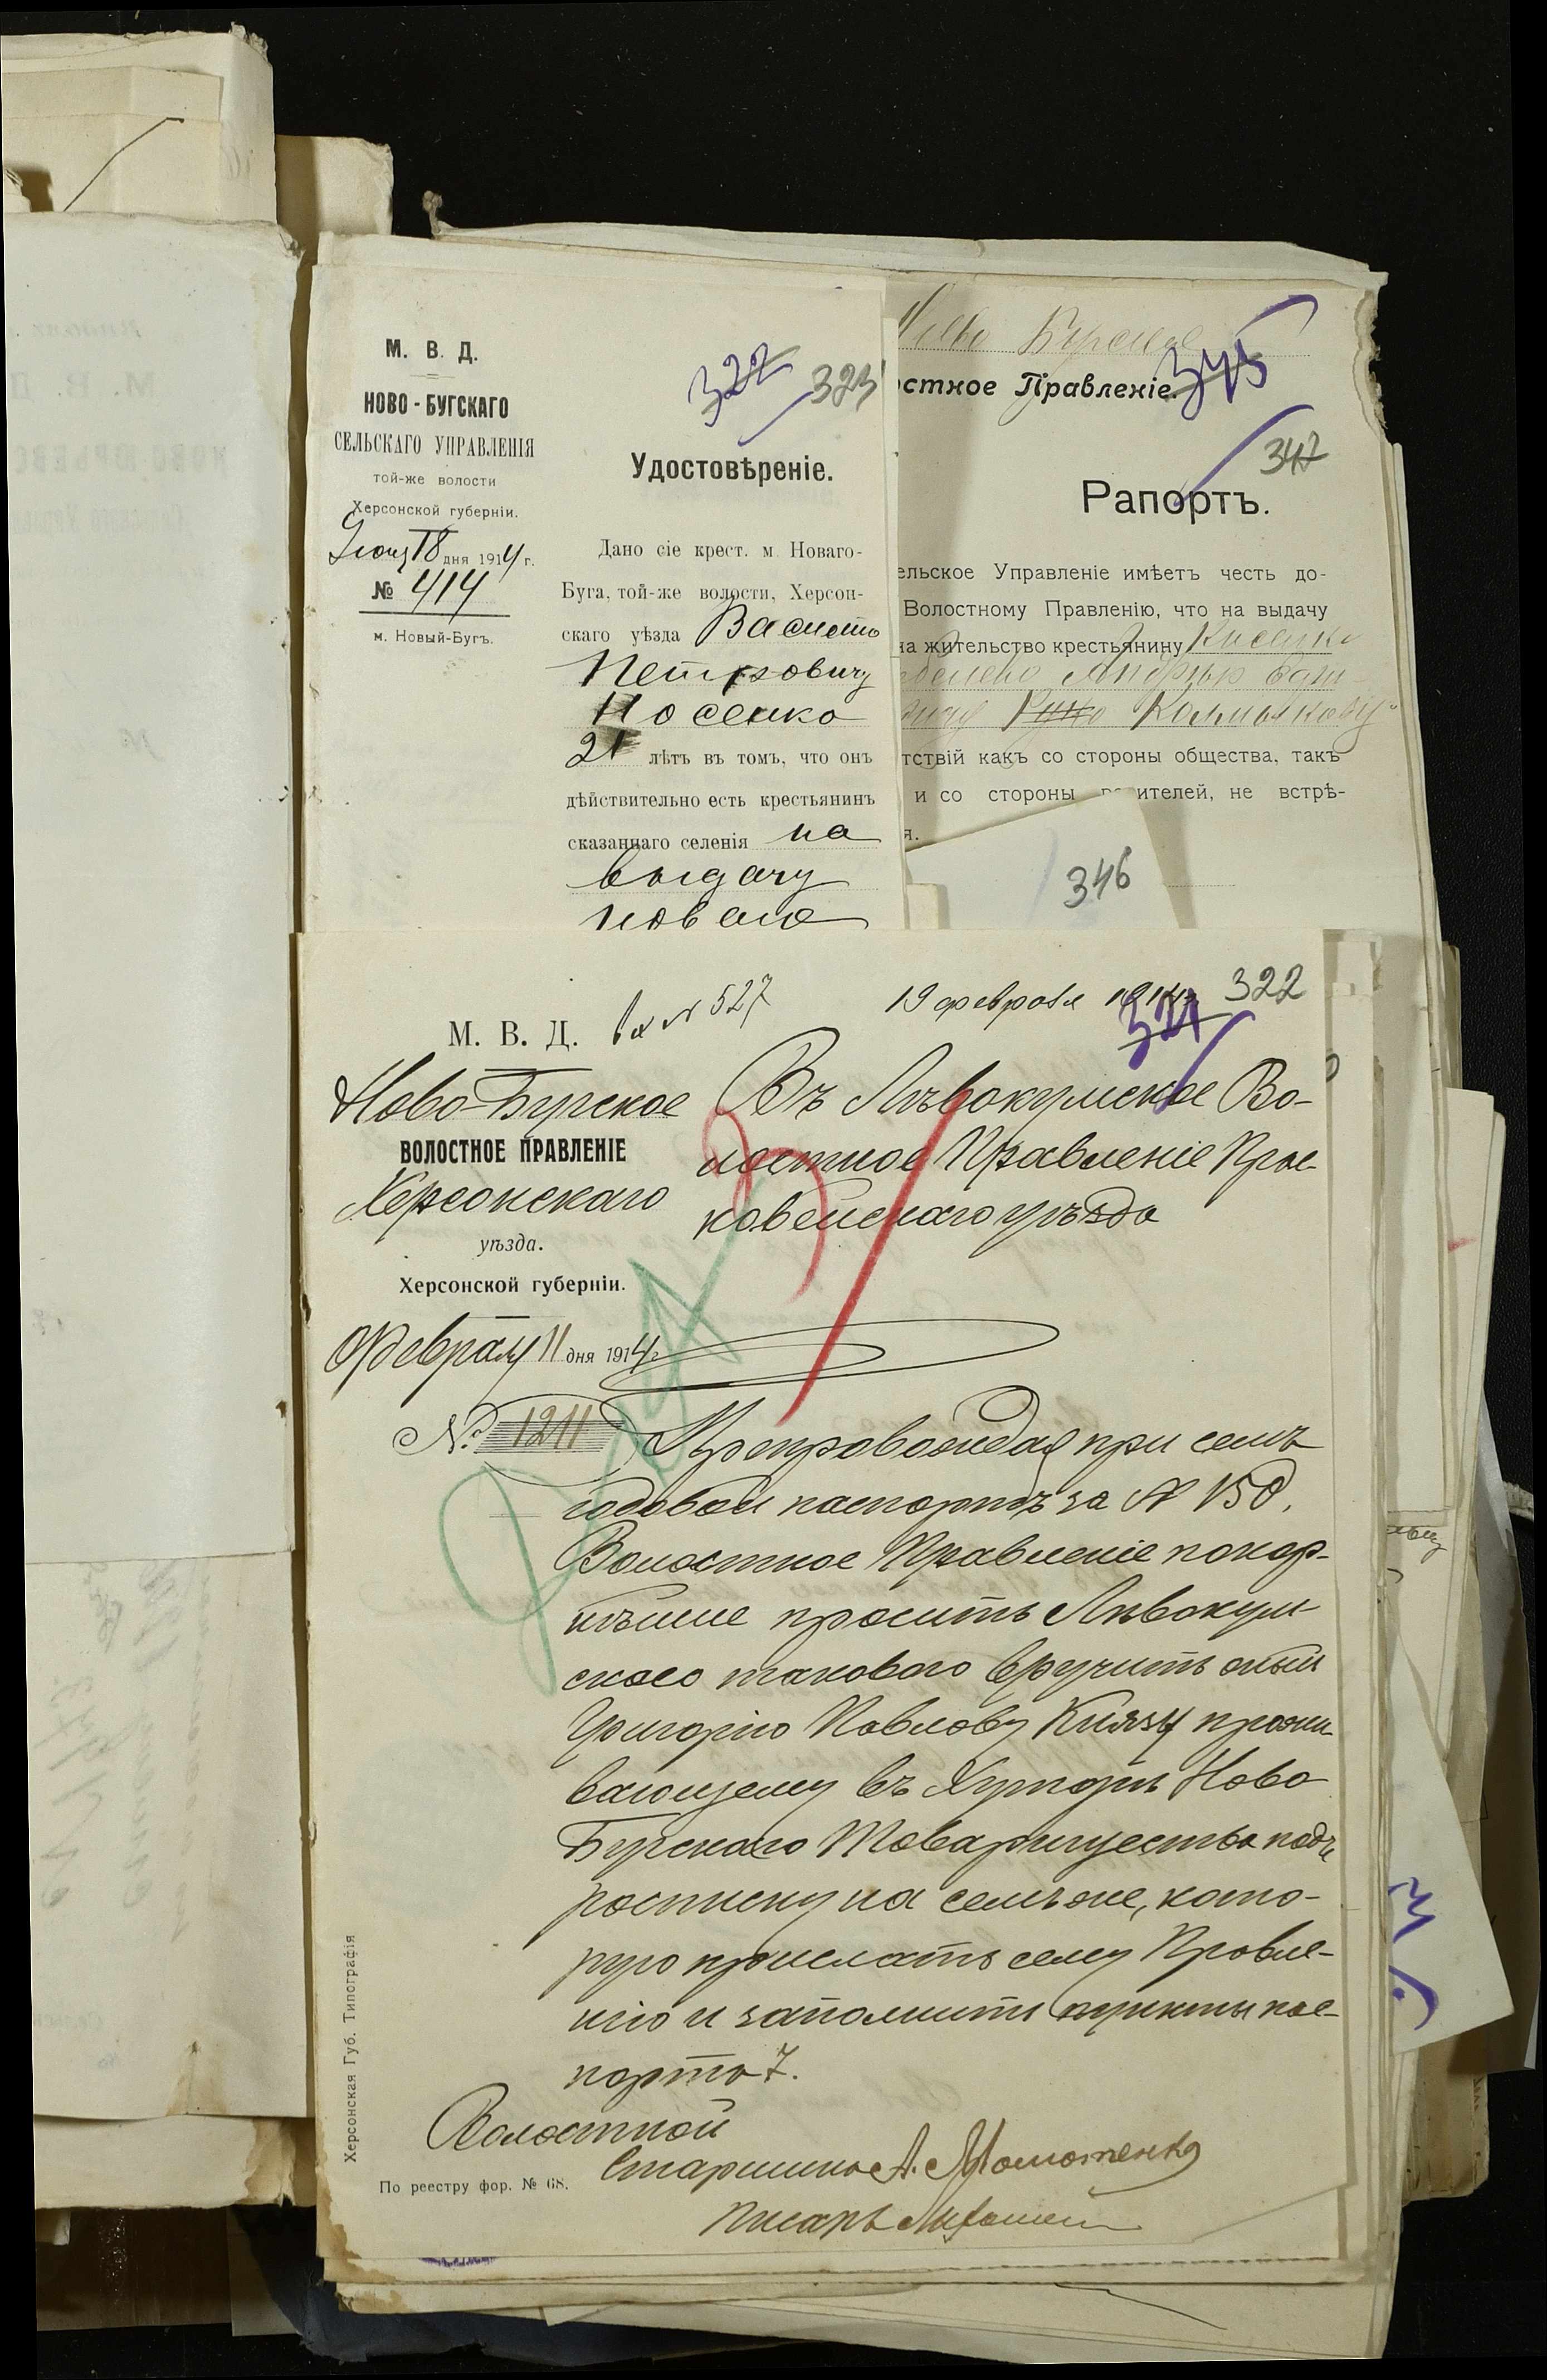 М. В. Д.
НОВО-БУГСКАГО
СЕЛЬСКАГО УПРАВЛЕНІЯ
той-же волости
Херсонской губерніи.
18 дня 1914 г.
№ 414
м. Новый-Бугъ.
322 323
Удостовѣреніе.
Дано сіе крест. м. Новаго-
Буга, той-же волости, Херсон-
скаго уѣзда
Петровичу
Носенко
21 лѣтъ въ томъ, что онъ
дѣйствительно есть крестьянинъ
сказаннаго селенія на
выдачу
остное Правленіе.
345
347
Рапортъ.
ельское Управленіе имѣетъ честь до-
Волостному Правленію, что на выдачу
на жительство крестьянину
тствій какъ со стороны общества, такъ
и со стороны ителей, не встрѣ-
я.
346
М. В. Д.
Вх № 527
19 февраля 1914 322
321
Ново-Бугское
ВОЛОСТНОЕ ПРАВЛЕНІЕ
Херсонскаго
уѣзда.
Херсонской губерніи.
Февраля 11 дня 1914 г.
№ 1211
Въ Лѣвокумское Во-
лостное Правленіе Прас-
ковейскаго уѣзда
Препровождая при семъ
годовой паспортъ за № 150,
Волостное Правленіе покор-
нѣйше проситъ Лѣвокум-
ское таковаго вручить
Григорію Павлову Князу прожи-
вающему въ Хуторѣ Ново
Бугскаго Товарищества подъ
росписку на семъ же, кото-
рую прислать сему Правле-
нію и заполнить пункты пас-
порта 7.
Волостной
Старшина А.
Писарь
Херсонская Губ. Типографія
По реестру фор. № 68.